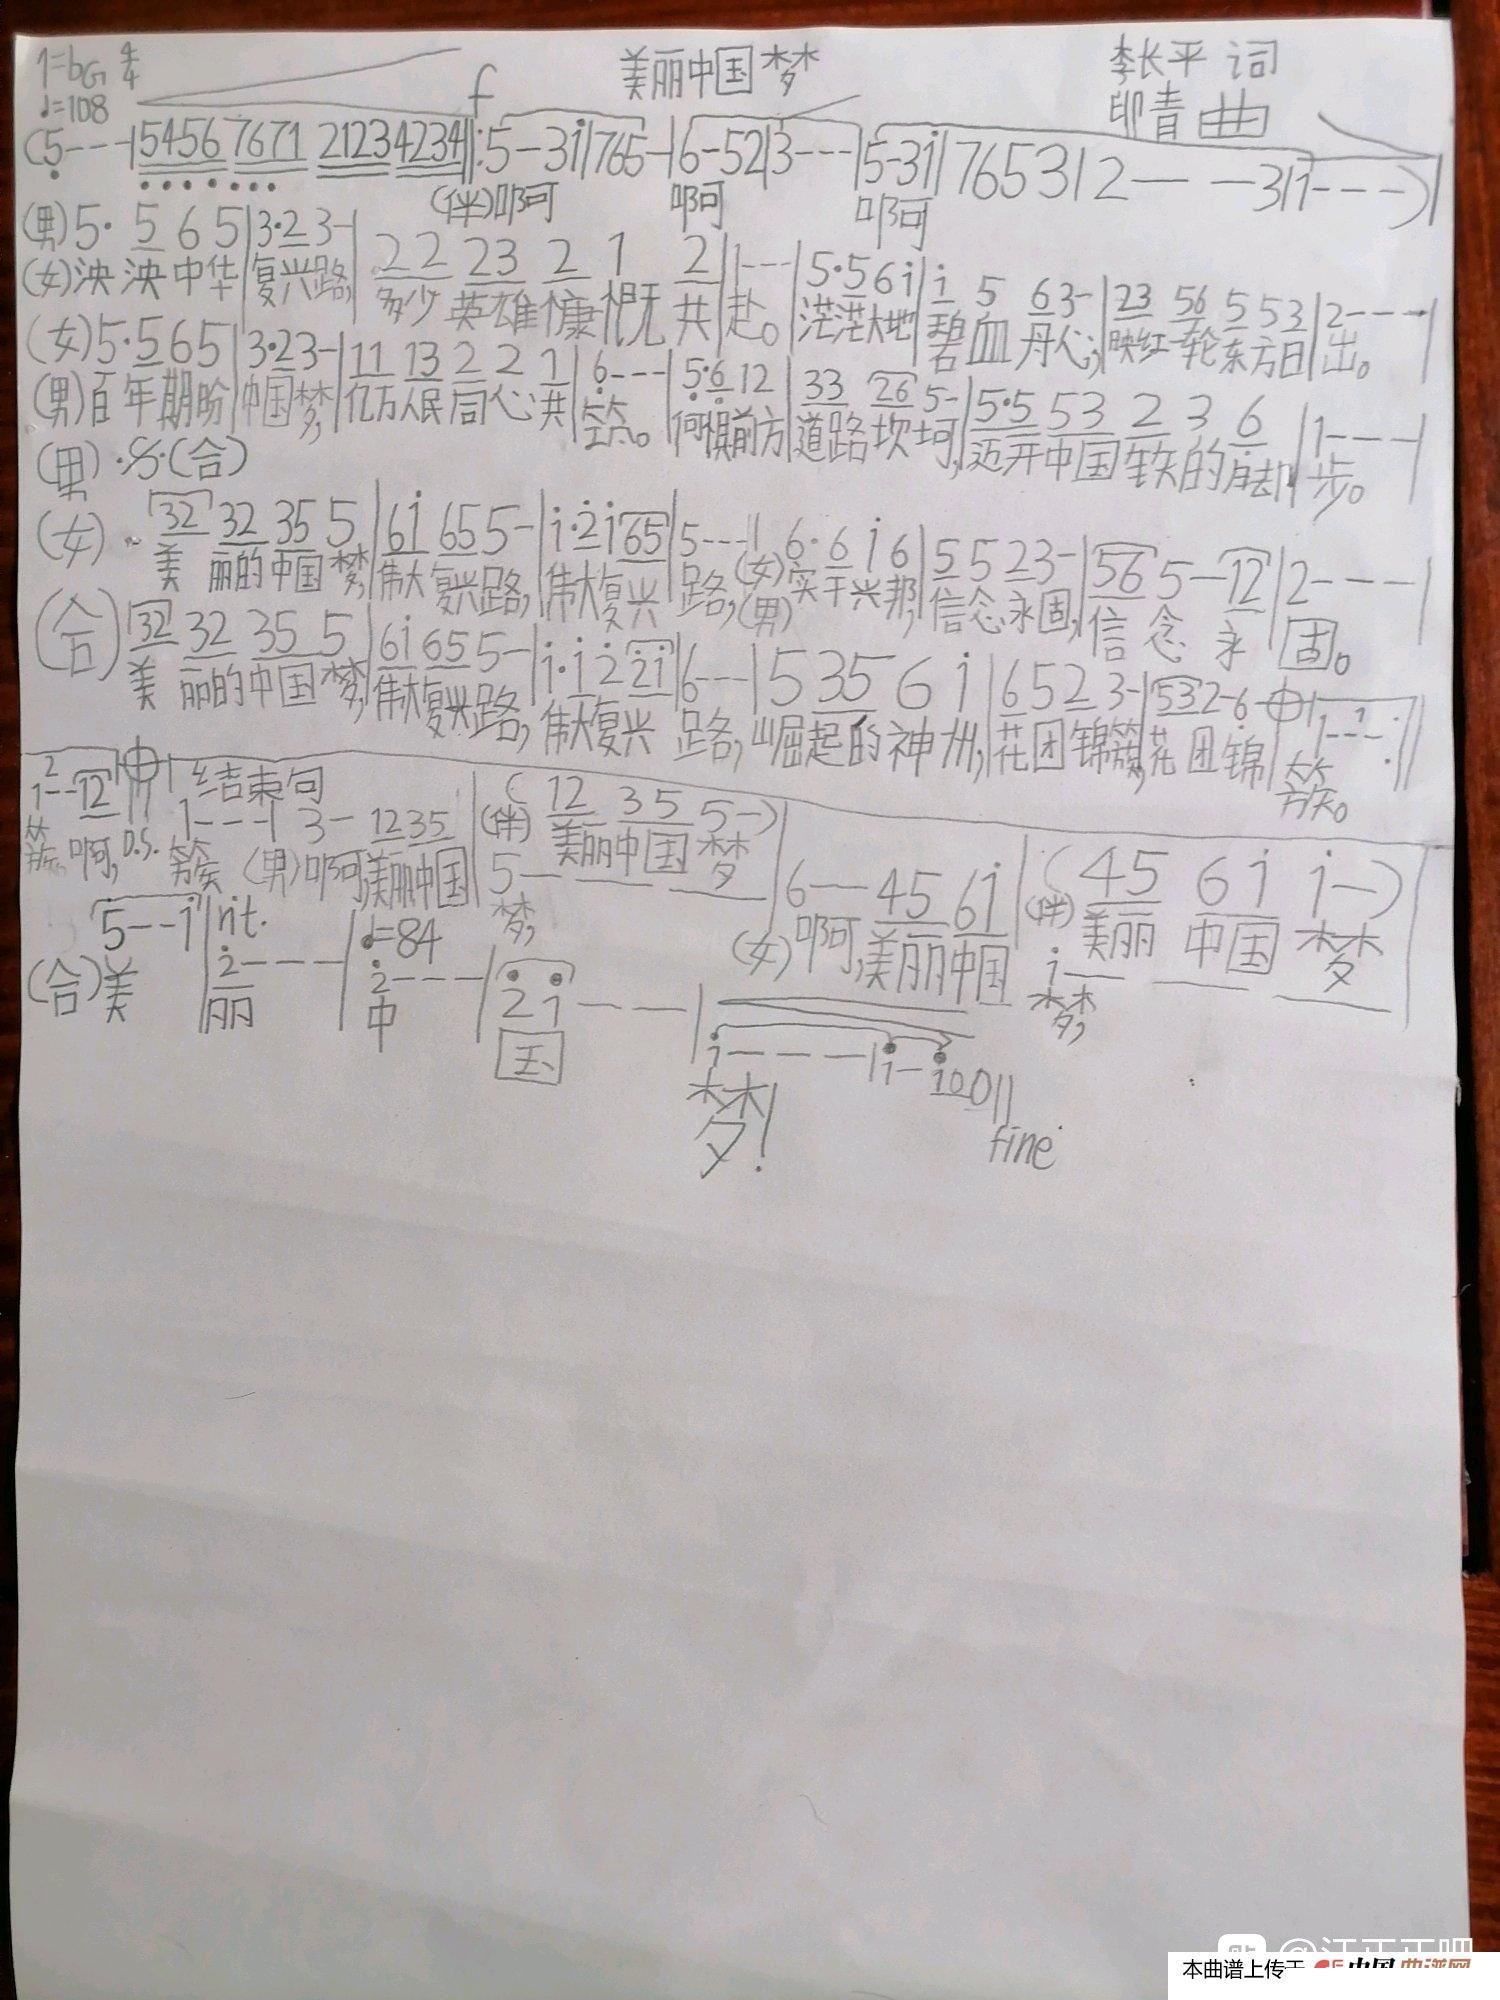 1=bG 4/4 美丽中国梦 李长平 词
♩=108 f 印青 曲
(5---|5456 7671 2123 4234‖:5-3i|765-|6-52|3---|5-3i|76531|2---3|1---)|
(伴)啊 啊 啊
(男)5· 5 6 5|3·2 3-|22 23 2 1 2|1---|5·5 6 i|i 5 6 3-|23 56 5 5 3|2----|
(女)泱泱中华 复兴路, 多少英雄慷慨共赴。茫茫大地碧血丹心, 映红一轮东方日出。
(女)5·5 6 5|3·2 3-|11 13 2 2 1|6---|5·6 12|33 26 5-|5·5 53 2 3 6|1---|
(男)百年期盼 中国梦, 亿万人民同心共筑。何惧前方道路坎坷, 迈开中国铁的脚步。
(男)·S·(合)
(女) 32 32 35 5|6i 65 5-|i·2 i 65|5---|6·6 i 6|5 5 2 3-|56 5-12|2---|
美丽的中国梦, 伟大复兴路, 伟大复兴路, (女)(男)实干兴邦, 信念永固, 信念永固。
(合)32 32 35 5|6i 65 5-|i·i 2 2i|6---|5 35 6 i|6 5 2 3-|53 2-6|1---:‖
美丽的中国梦, 伟大复兴路, 伟大复兴路, 崛起的神州, 花团锦簇, 花团锦簇。
2 结束句 (12 35 5-)
1--12‖1---|3-1235|(伴)美丽中国梦
簇。啊, D.S. 簇 (男)啊,美丽中国 5---
梦,
6--45 6i|(45 6i i-)
(女)啊,美丽中国 (伴)美丽中国梦
i---
梦,
5--i|rit. 2---|♩=84 2---|21--|i---|i-i00‖
(合)美丽中国梦!
fine
本曲谱上传于 中国曲谱网